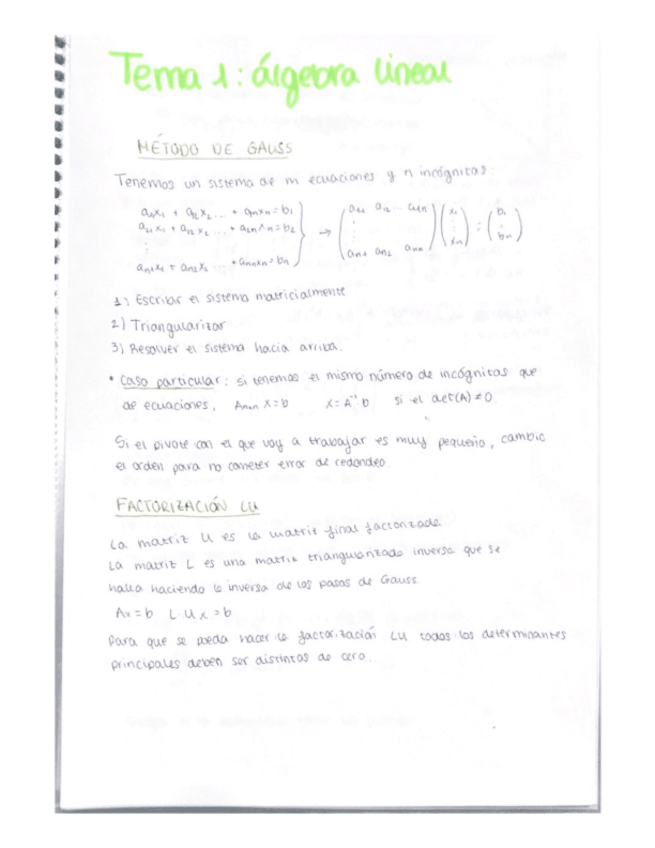 Tema 1: álgebra lineal
MÉTODO DE GAUSS
Tenemos un sistema de m ecuaciones y n incógnitas:
a₁₁x₁ + a₁₂x₂ ... + a₁nxn = b₁
a₂₁x₁ + a₁₂x₂ ... + a₂nxn = b₂
⋮
an₁x₁ + an₂x₂ + annxn = bn
→ (a₁₁ a₁₂ ... a₁n ⋮ an₁ an₂ ann) (x₁ ⋮ xn) = (b₁ ⋮ bn)
1) Escribir el sistema matricialmente
2) Triangularizar
3) Resolver el sistema hacia arriba.
• Caso particular: si tenemos el mismo número de incógnitas que
de ecuaciones, Anxn X = b X = A⁻¹ b si el det(A) ≠ 0.
Si el pivote con el que voy a trabajar es muy pequeño, cambio
el orden para no cometer error de redondeo.
FACTORIZACIÓN LU
La matriz U es la matriz final factorizada.
La matriz L es una matriz triangularizada inversa que se
halla haciendo la inversa de los pasos de Gauss.
Ax = b L·U x = b
Para que se pueda hacer la factorización LU todos los determinantes
principales deben ser distintos de cero.